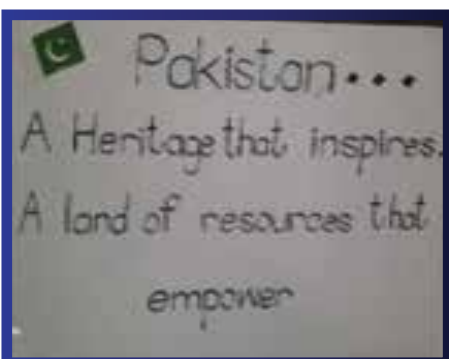 Pakistan...
A Heritage that inspires.
A land of resources that
empower